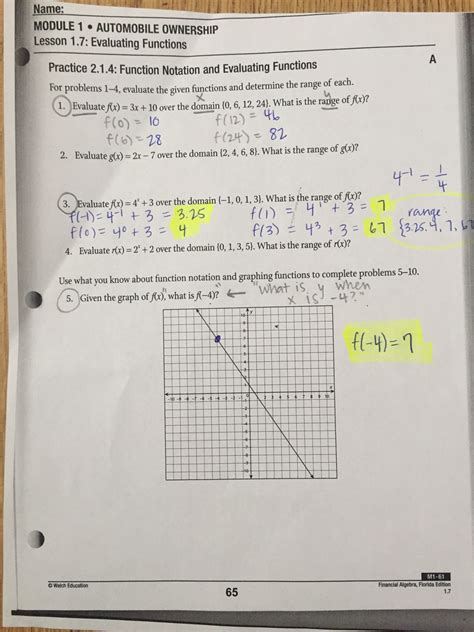 Name:
MODULE 1 • AUTOMOBILE OWNERSHIP
Lesson 1.7: Evaluating Functions
A
Practice 2.1.4: Function Notation and Evaluating Functions
For problems 1–4, evaluate the given functions and determine the range of each.
x y
1. Evaluate f(x) = 3x + 10 over the domain {0, 6, 12, 24}. What is the range of f(x)?
f(0) = 10 f(12) = 46
f(6) = 28 f(24) = 82
2. Evaluate g(x) = 2x – 7 over the domain {2, 4, 6, 8}. What is the range of g(x)?
4⁻¹ = 1/4
3. Evaluate f(x) = 4ˣ + 3 over the domain {–1, 0, 1, 3}. What is the range of f(x)?
f(-1) = 4⁻¹ + 3 = 3.25 f(1) = 4¹ + 3 = 7 range:
f(0) = 4⁰ + 3 = 4 f(3) = 4³ + 3 = 67 {3.25, 4, 7, 67
4. Evaluate r(x) = 2ˣ + 2 over the domain {0, 1, 3, 5}. What is the range of r(x)?
Use what you know about function notation and graphing functions to complete problems 5–10.
5. Given the graph of f(x), what is f(–4)? ← "what is y when
x is -4?"
y
f(-4) = 7
x
-10 -9 -8 -7 -6 -5 -4 -3 -2 -1 0 1 2 3 4 5 6 7 8 9 10
M1-61
© Walch Education
65
Financial Algebra, Florida Edition
1.7